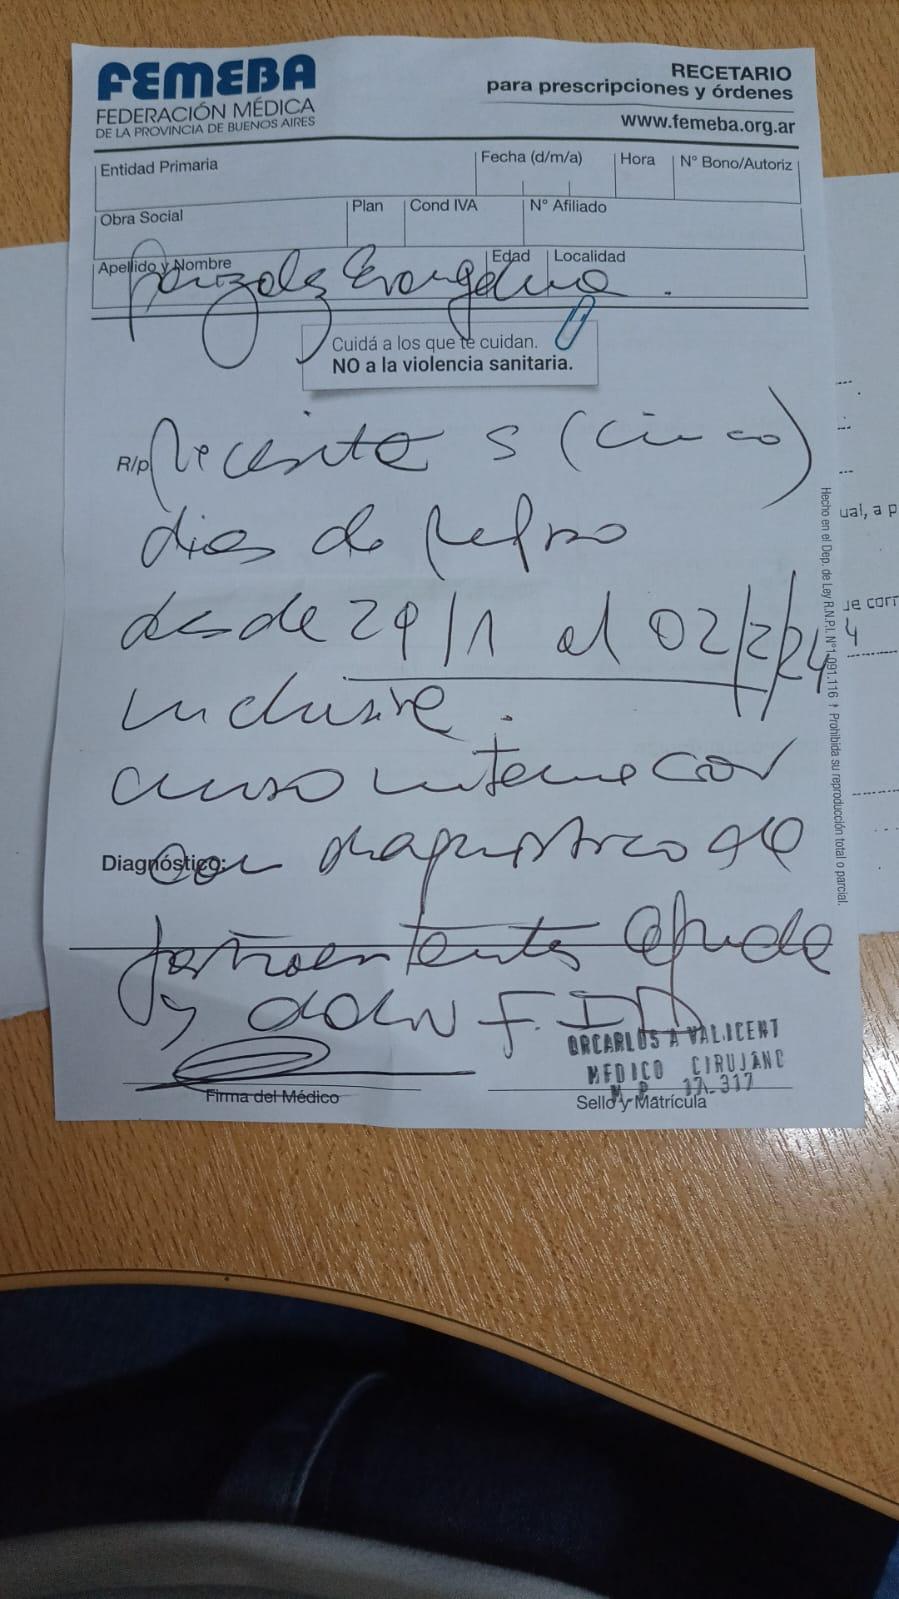 FEMEBA
FEDERACIÓN MÉDICA
DE LA PROVINCIA DE BUENOS AIRES
RECETARIO
para prescripciones y órdenes
www.femeba.org.ar
Entidad Primaria
Fecha (d/m/a)
Hora
N° Bono/Autoriz
Obra Social
Plan
Cond IVA
N° Afiliado
Apellido y Nombre
Edad
Localidad
Gonzalez Evangelina.
Cuidá a los que te cuidan.
NO a la violencia sanitaria.
R/p
Necesita 5 (cinco)
dias de reposo
desde 29/1 al 02/2/24
inclusive.
curso internacion
Diagnóstico:
con diagnostico de
gastroenteritis aguda
y dolor F.ID
DR CARLOS A VALICENT
MEDICO CIRUJANO
M P 17.317
Firma del Médico
Sello y Matrícula
Hecho en el Dep. de Ley R.N.P.I. N°1.091.116 † Prohibida su reproducción total o parcial.
ual, a p